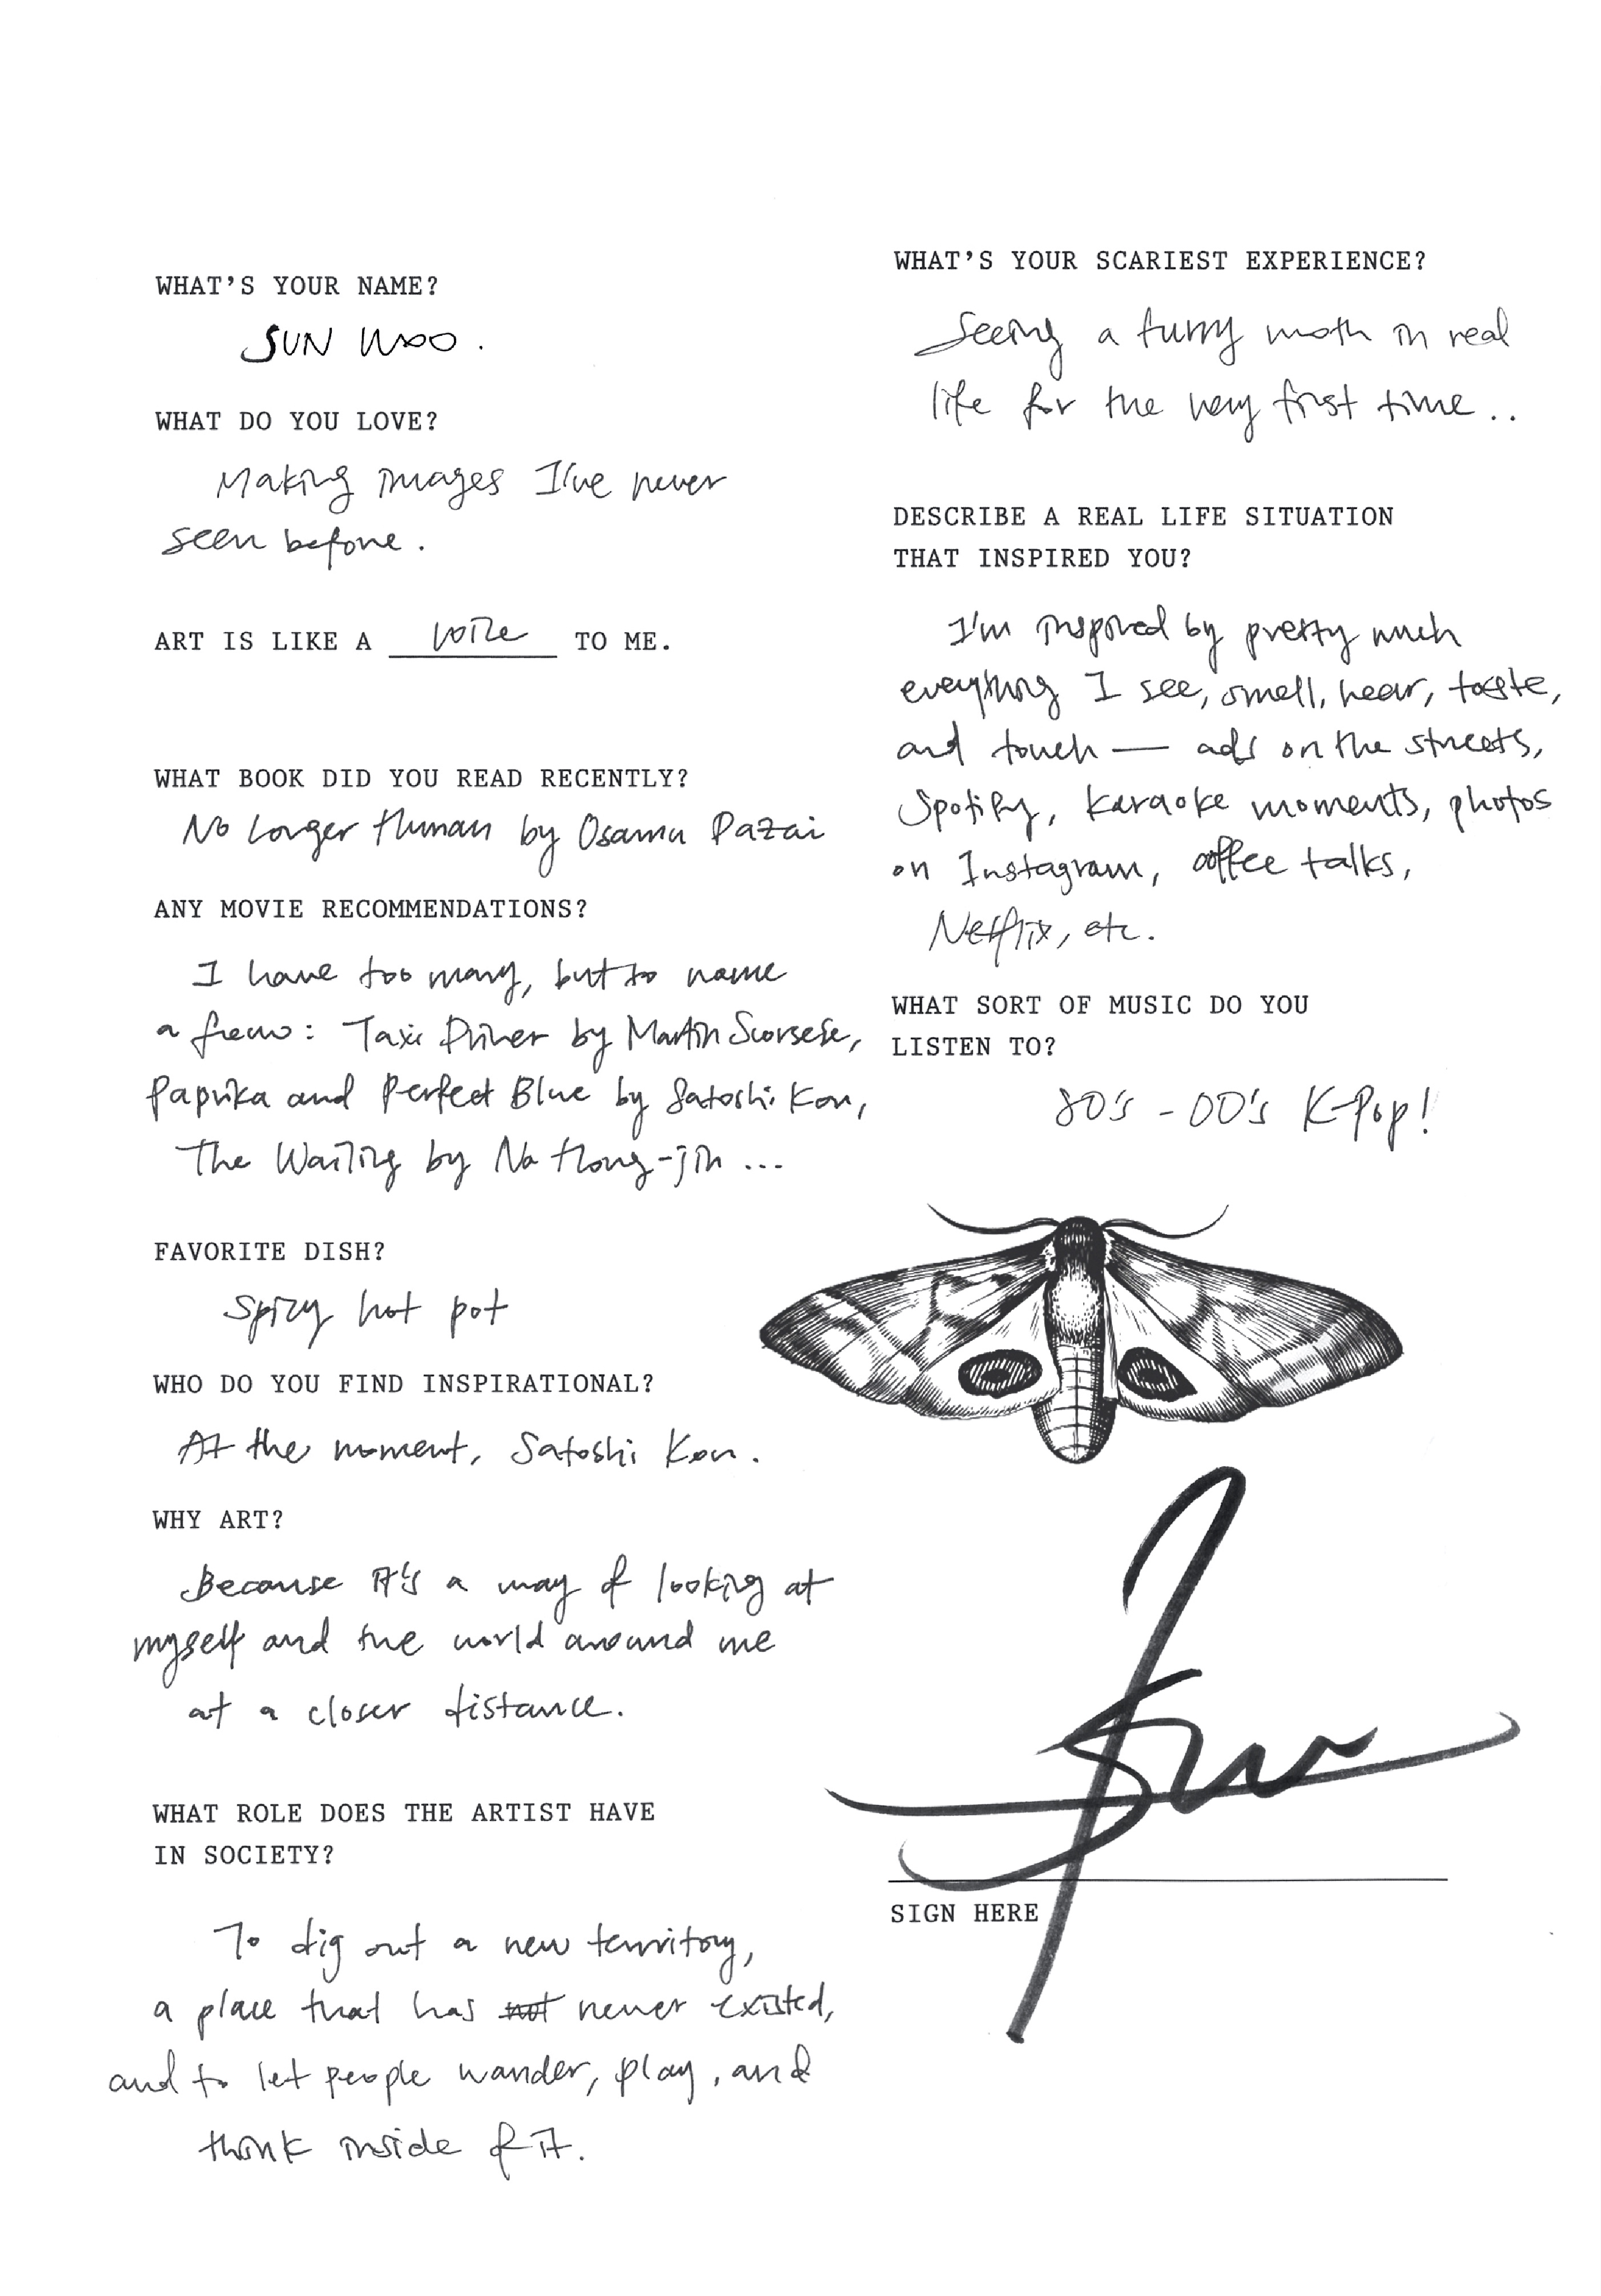 WHAT'S YOUR NAME?
SUN WOO.
WHAT DO YOU LOVE?
Making images I've never
seen before.
ART IS LIKE A voice TO ME.
WHAT BOOK DID YOU READ RECENTLY?
No Longer Human by Osamu Dazai
ANY MOVIE RECOMMENDATIONS?
I have too many, but to name
a few: Taxi Driver by Martin Scorsese,
Paprika and Perfect Blue by Satoshi Kon,
The Wailing by Na Hong-jin ...
FAVORITE DISH?
Spicy hot pot
WHO DO YOU FIND INSPIRATIONAL?
At the moment, Satoshi Kon.
WHY ART?
Because it's a way of looking at
myself and the world around me
at a closer distance.
WHAT ROLE DOES THE ARTIST HAVE
IN SOCIETY?
To dig out a new territory,
a place that has not never existed,
and to let people wander, play, and
think inside of it.
WHAT'S YOUR SCARIEST EXPERIENCE?
Seeing a furry moth in real
life for the very first time..
DESCRIBE A REAL LIFE SITUATION
THAT INSPIRED YOU?
I'm inspired by pretty much
everything I see, smell, hear, taste,
and touch — ads on the streets,
Spotify, karaoke moments, photos
on Instagram, coffee talks,
Netflix, etc.
WHAT SORT OF MUSIC DO YOU
LISTEN TO?
80's - 00's K-Pop!
SIGN HERE